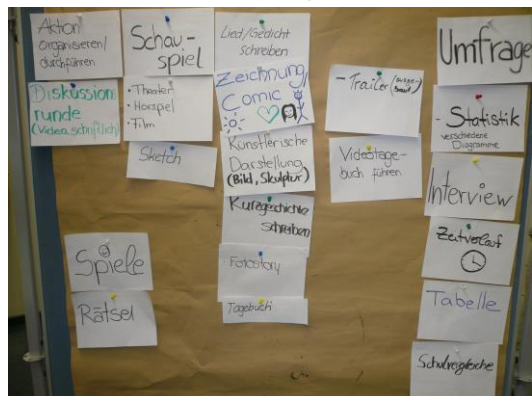 Aktion
organisieren/
durchführen
Diskussions
runde
(Video, schriftlich)
Spiele
Rätsel
Schau-
spiel
• Theater
• Hörspiel
• Film
Sketch
Lied/Gedicht
schreiben
Zeichnung/
Comic
Künstlerische
Darstellung
(Bild, Skulptur)
Kurzgeschichte
schreiben
Fotostory
Tagebuch
- Trailer
Videotage-
buch führen
Umfrage
- Statistik
verschiedene
Diagramme
Interview
Zeitverlauf
Tabelle
Schulvergleiche